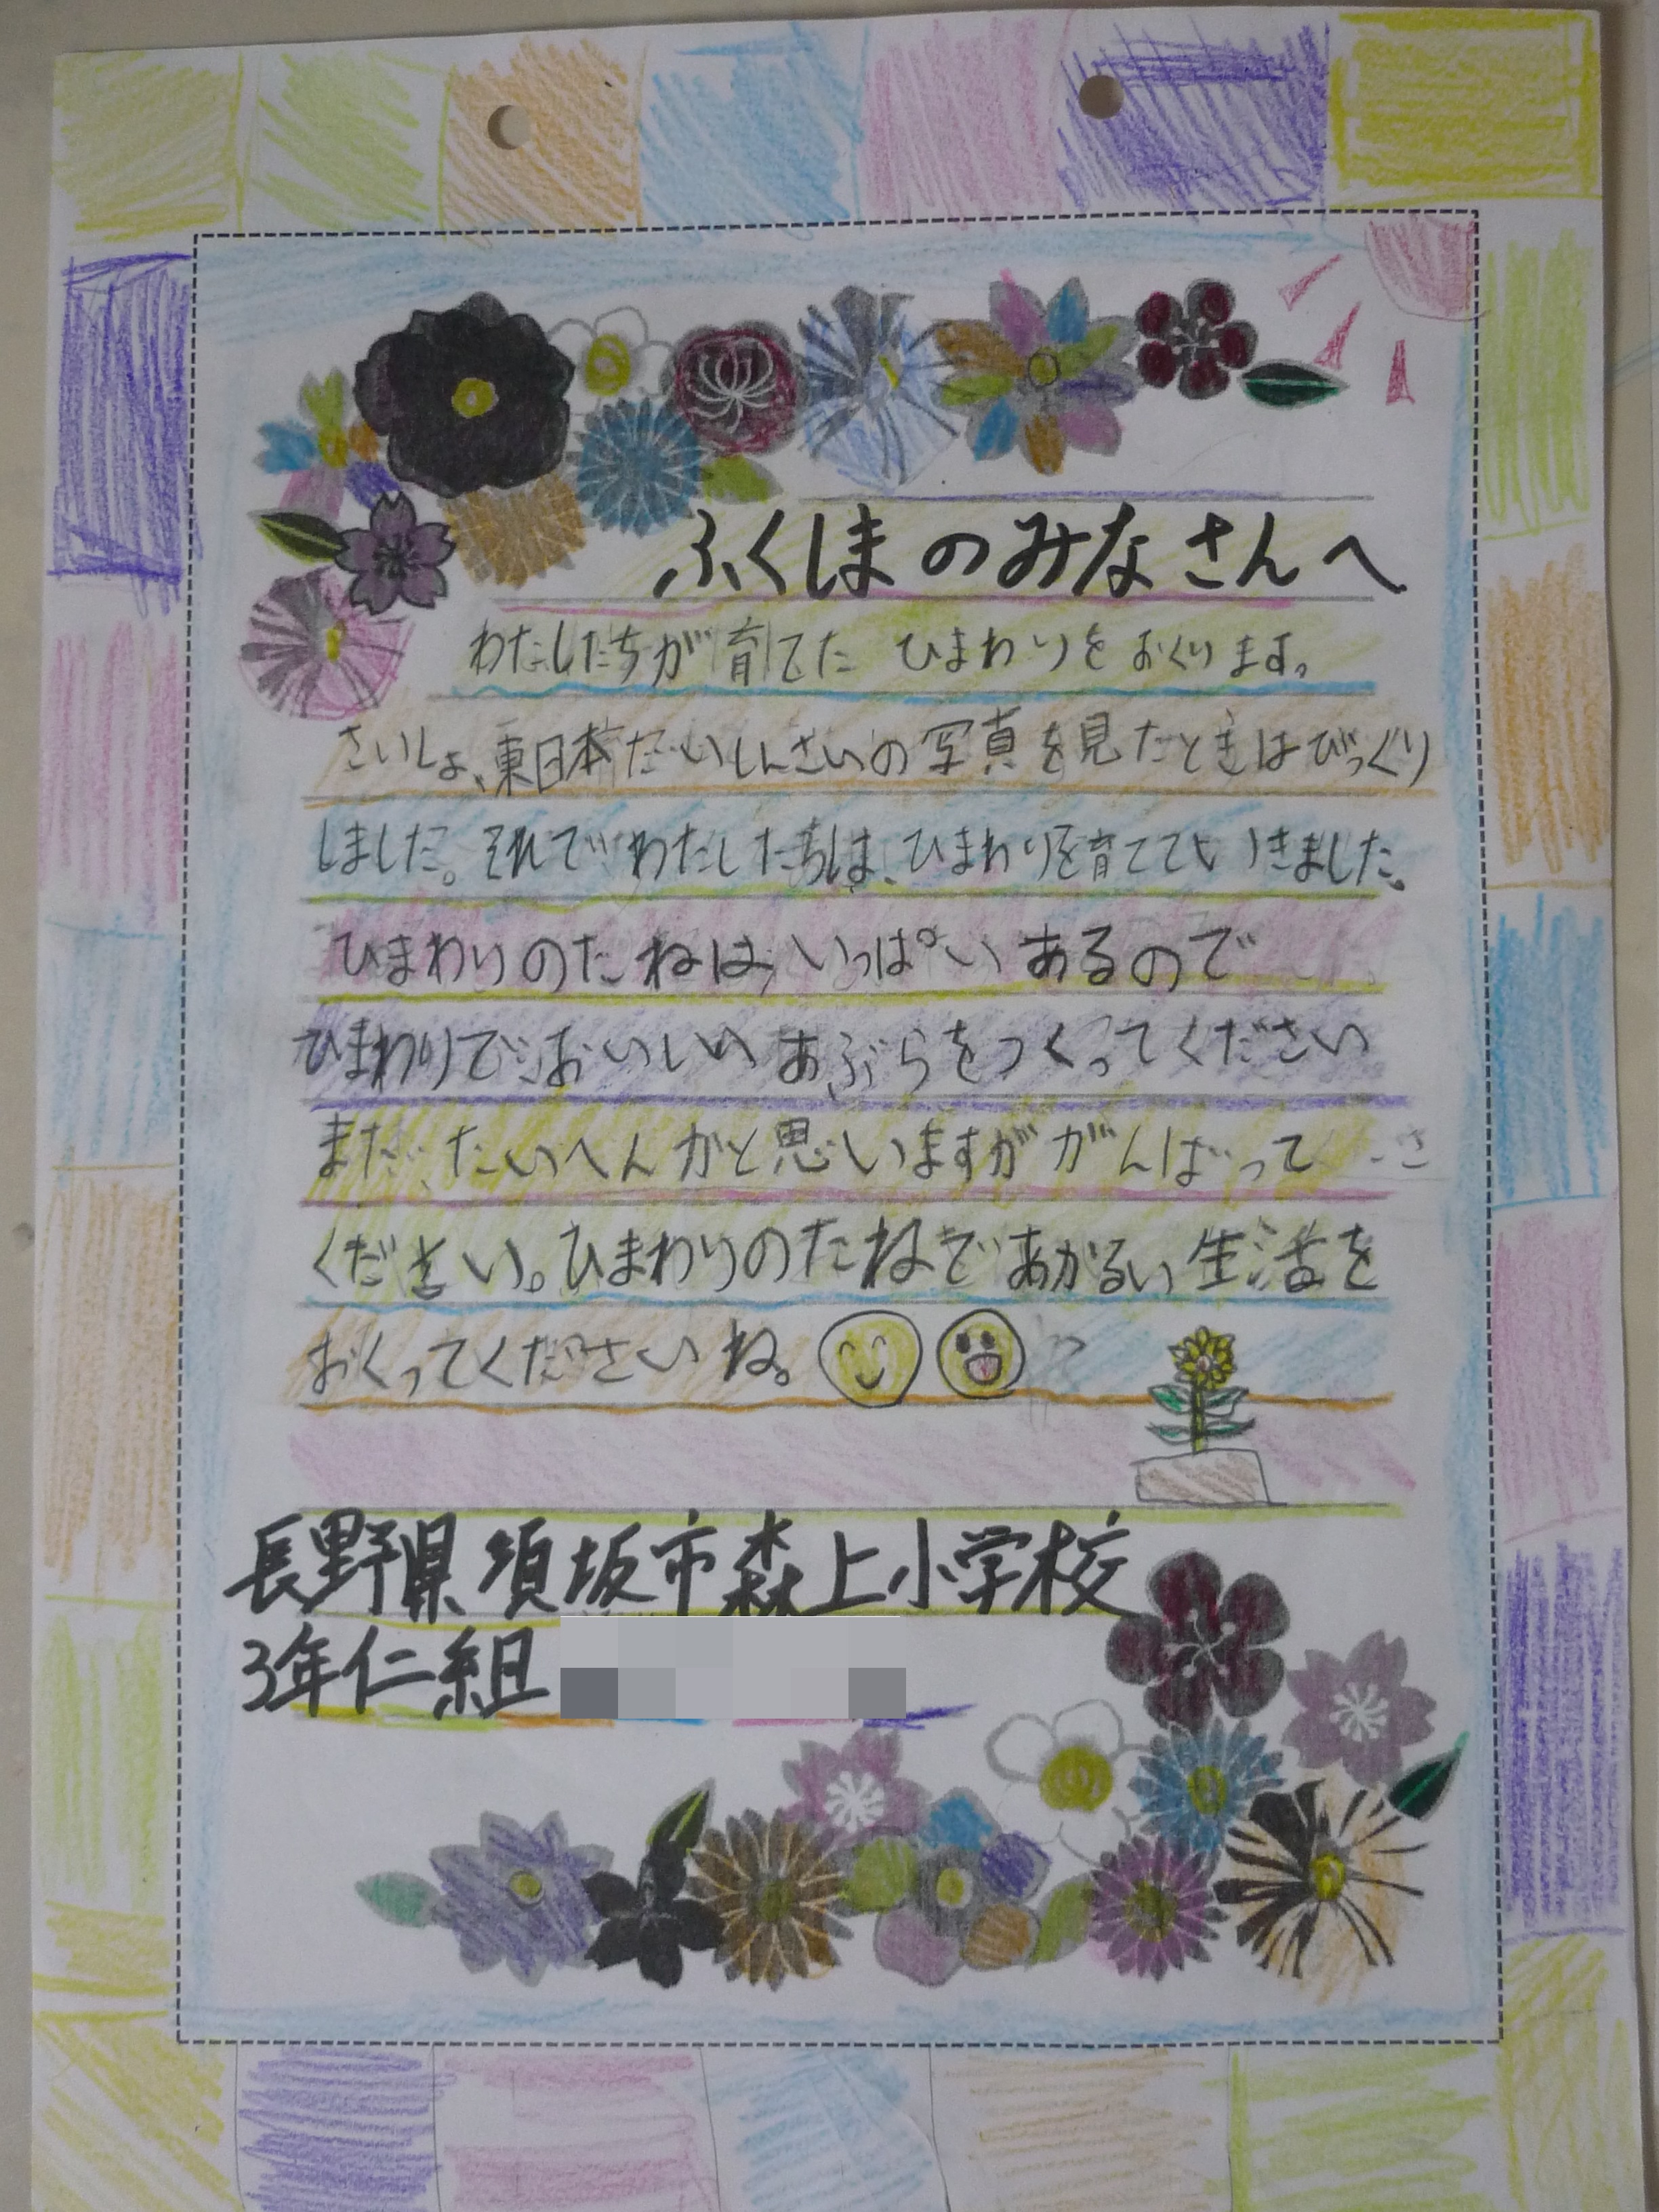 ふくしまのみなさんへ
わたしたちが育てた ひまわりをおくります。
さいしょ、東日本だいしんさいの写真を見たときはびっくり
しました。それでわたしたちは、ひまわりを育てていきました。
ひまわりのたねは、いっぱいあるので
ひまわりで、おいしい あぶらをつくってください
まだ、たいへんかと思いますが がんばって
ください。ひまわりのたねで あかるい生活を
おくってくださいね。
長野県須坂市森上小学校
3年仁組